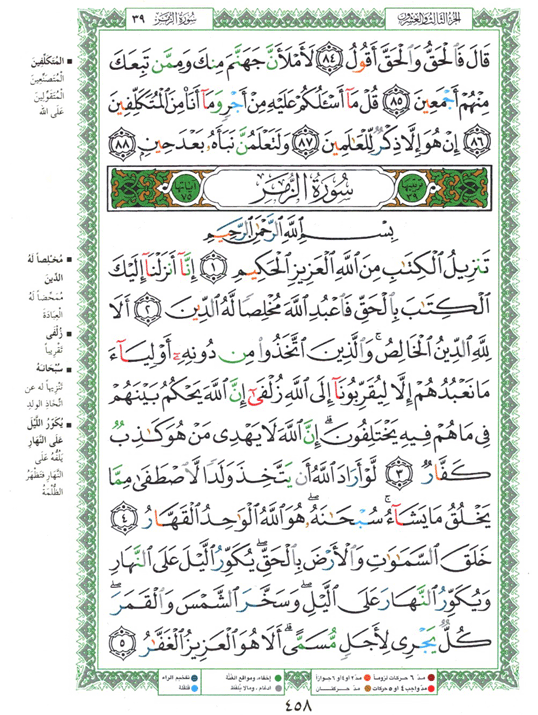 الجزء الثالث والعشرون
سُورَةُ الزُّمَرِ ٣٩
قَالَ فَالْحَقُّ وَالْحَقَّ أَقُولُ ٨٤ لَأَمْلَأَنَّ جَهَنَّمَ مِنكَ وَمِمَّن تَبِعَكَ
مِنْهُمْ أَجْمَعِينَ ٨٥ قُلْ مَآ أَسْـَٔلُكُمْ عَلَيْهِ مِنْ أَجْرٍ وَمَآ أَنَا۠ مِنَ الْمُتَكَلِّفِينَ
٨٦ إِنْ هُوَ إِلَّا ذِكْرٌ لِّلْعَالَمِينَ ٨٧ وَلَتَعْلَمُنَّ نَبَأَهُۥ بَعْدَ حِينٍ ٨٨
ترتيبها ٣٩ سُورَةُ الزُّمَرِ آياتها ٧٥
بِسْمِ اللَّهِ الرَّحْمَٰنِ الرَّحِيمِ
تَنزِيلُ الْكِتَٰبِ مِنَ اللَّهِ الْعَزِيزِ الْحَكِيمِ ١ إِنَّآ أَنزَلْنَآ إِلَيْكَ
الْكِتَٰبَ بِالْحَقِّ فَاعْبُدِ اللَّهَ مُخْلِصًا لَّهُ الدِّينَ ٢ أَلَا
لِلَّهِ الدِّينُ الْخَالِصُ ۚ وَالَّذِينَ اتَّخَذُوا۟ مِن دُونِهِۦٓ أَوْلِيَآءَ
مَا نَعْبُدُهُمْ إِلَّا لِيُقَرِّبُونَآ إِلَى اللَّهِ زُلْفَىٰٓ إِنَّ اللَّهَ يَحْكُمُ بَيْنَهُمْ
فِى مَا هُمْ فِيهِ يَخْتَلِفُونَ ۗ إِنَّ اللَّهَ لَا يَهْدِى مَنْ هُوَ كَٰذِبٌ
كَفَّارٌ ٣ لَّوْ أَرَادَ اللَّهُ أَن يَتَّخِذَ وَلَدًا لَّاصْطَفَىٰ مِمَّا
يَخْلُقُ مَا يَشَآءُ ۚ سُبْحَٰنَهُۥ ۖ هُوَ اللَّهُ الْوَٰحِدُ الْقَهَّارُ ٤
خَلَقَ السَّمَٰوَٰتِ وَالْأَرْضَ بِالْحَقِّ ۖ يُكَوِّرُ الَّيْلَ عَلَى النَّهَارِ
وَيُكَوِّرُ النَّهَارَ عَلَى الَّيْلِ ۖ وَسَخَّرَ الشَّمْسَ وَالْقَمَرَ ۖ
كُلٌّ يَجْرِى لِأَجَلٍ مُّسَمًّى ۗ أَلَا هُوَ الْعَزِيزُ الْغَفَّٰرُ ٥
■ المُتَكَلِّفِينَ
المُتَصَنِّعِينَ
المُتَقَوِّلِينَ
عَلَى الله
■ مُخْلِصاً لَهُ
الدِّينَ
مُمَحِّضاً لَهُ
العِبَادَةَ
■ زُلْفَى
تَقْرِيباً
■ سُبْحَانَهُ
تَنْزِيهاً له عن
اتّخاذِ الولدِ
■ يُكَوِّرُ اللَّيْلَ
عَلَى النَّهَارِ
يَلُفُّهُ عَلَى
النَّهَارِ فَتَظْهَرُ
الظُّلْمَةُ
مدّ ٦ حركات لزوماً مدّ ٢ أو ٤ أو ٦ جوازاً إخفاء، ومواقع الغُنَّة تفخيم الراء
مدّ واجب ٤ أو ٥ حركات مدّ حركتان ادغام، وما لا يُلفَظ قلقلة
٤٥٨